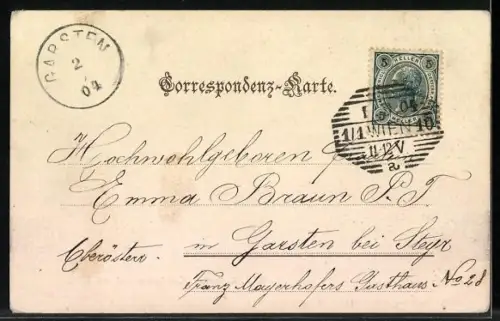 GARSTEN
2
04
Correspondenz-Karte.
5 HELLER 5
I 04
1/1 WIEN 10
11-12V
a
Hochwohlgeboren
Emma Braun P.T
in Garsten bei Steyr
Oberösterr.
Franz Mayerhofers Gasthaus No 28